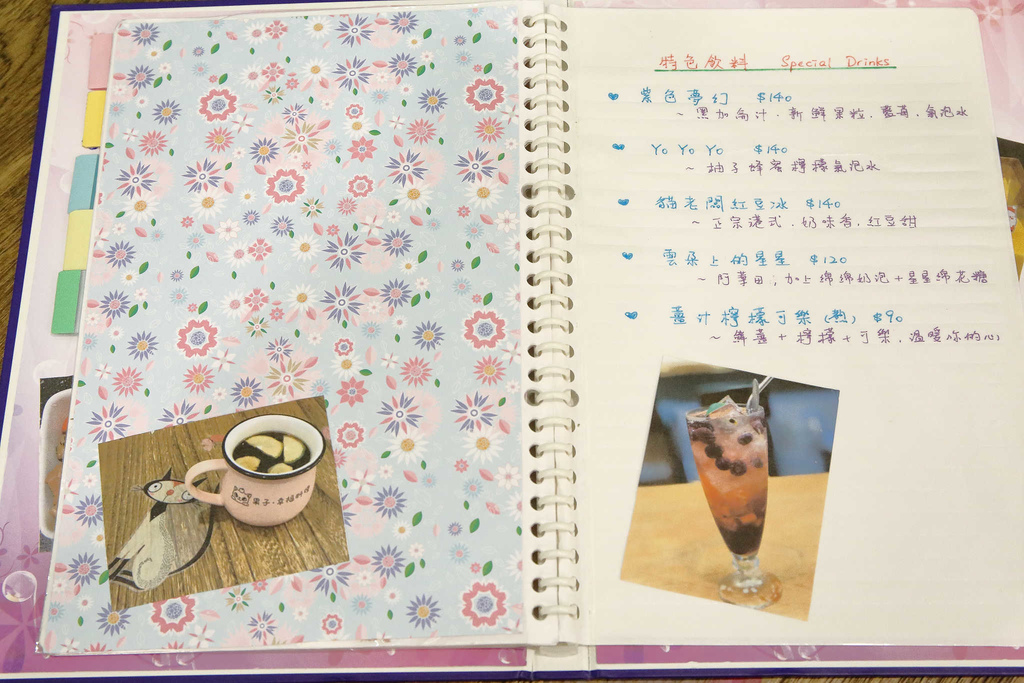 特色飲料 Special Drinks
紫色夢幻 $140
~ 黑加侖汁.新鮮果粒.藍莓.氣泡水
Yo Yo Yo $140
~ 柚子蜂蜜檸檬氣泡水
貓老闆紅豆冰 $140
~ 正宗港式.奶味香.紅豆甜
雲朵上的星星 $120
~ 阿華田,加上綿綿奶泡+星星綿花糖
薑汁檸檬可樂(熱) $90
~ 鮮薑+檸檬+可樂,溫暖你的心
菓子.幸福料理